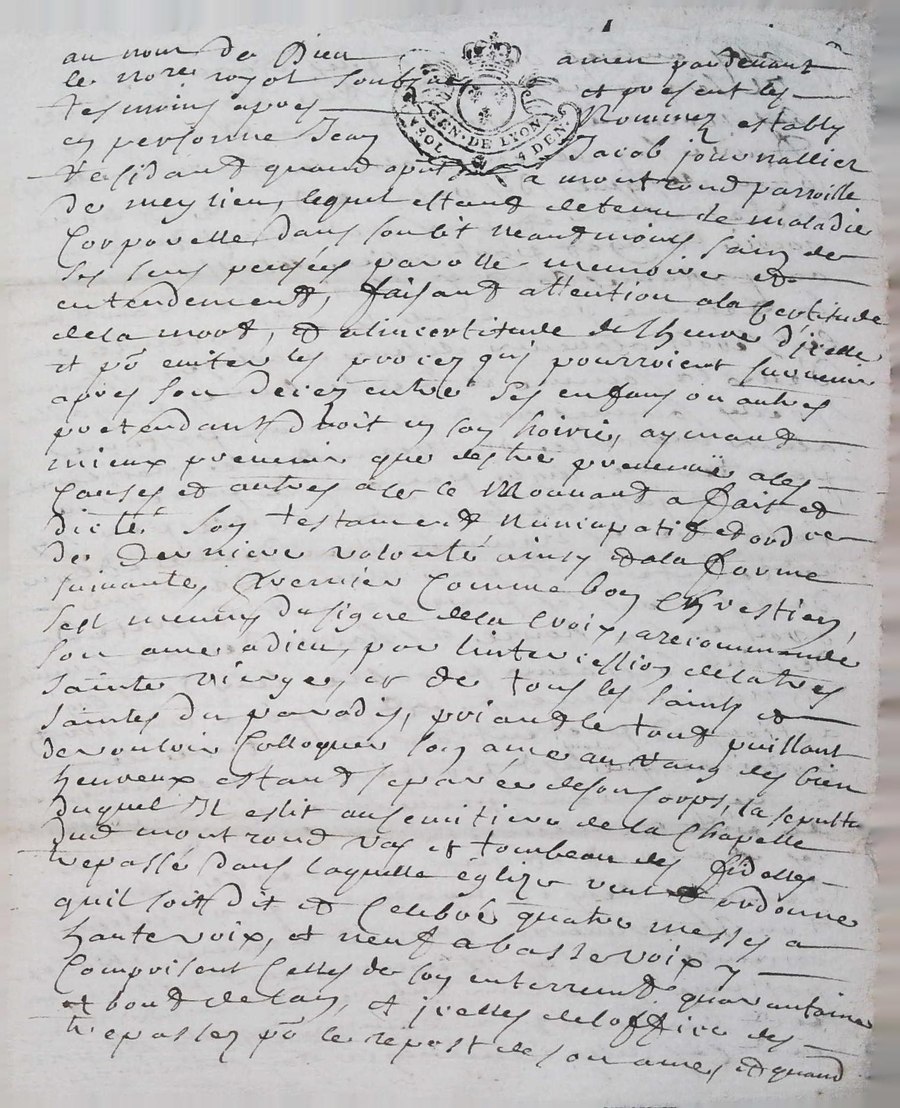 1
au nom de Dieu amen pardevant
le nore royal soubsne et present les
tesmoins apres Nommez estably
en personne Jean Jacob journallier
GEN. DE LYON
4 DEN.
residant quand a pnt a montrond parroisse
de meylieu, lequel estant detenu de maladie
Corporelle dans son lit neandmoins sain de
ses sens pensées parolle memoire et
entendement, faisant attention a la Certitude
de la mort, et a lincertitude de lheure d'jcelle
et po eviter les procez qui pourroient survenir
apres son decez entre ses enfans ou autres
pretendants droit en son hoirie, aymant
mieux prevenir que destre prevenu a les
Causes et autres a le mouvant a fait et
dicté son testament nuncupatif et ordre
de derniere volonté ainsy et a la forme
suivante, Premier Comme bon Chrestien,
sest muny du signe de la Croix, a recommandé
son ame a dieu, par lintercession de la tres
sainte vierge, et de tous les saints et
saintes du paradis, priant le tout puissant
de vouloir Colloquer son ame au rang des bien
heureux estant separée de son Corps, la sepultre
duquel Il eslit au semitiere de la Chapelle
dud montrond vas et tombeau des fidelles
trepassé dans laquelle églize veut et ordonne
quil soit dit et Celebré quatre messes a
haute voix, et neuf a basse voix y
Comprisent Celles de son enterrement quarantaine
et bout de lan, et jcelles de loffice des
trepassez po le repost de son ame, et quand